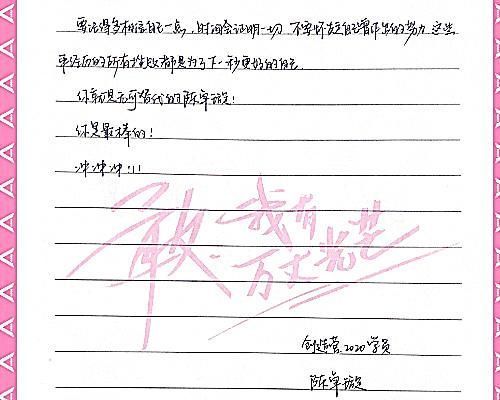 要记得多相信自己一点,时间会证明一切 不要怀疑自己曾作出的努力 这些
年经历的所有挫败都是为了下一秒更好的自己.
你就是无可替代的陈卓璇!
你是最棒的!
冲冲冲!!!
敢 我有万丈光芒
创造营2020学员
陈卓璇